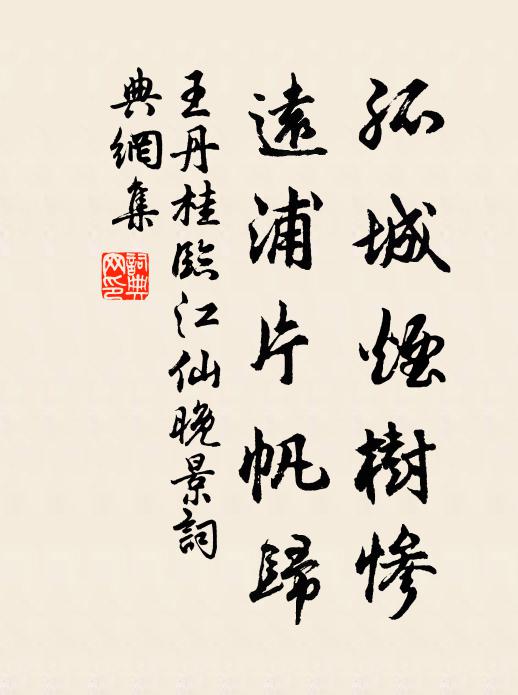 孤城煙樹慘
遠浦片帆歸
王丹桂臨江仙晚景詞
典網集
詞典網印